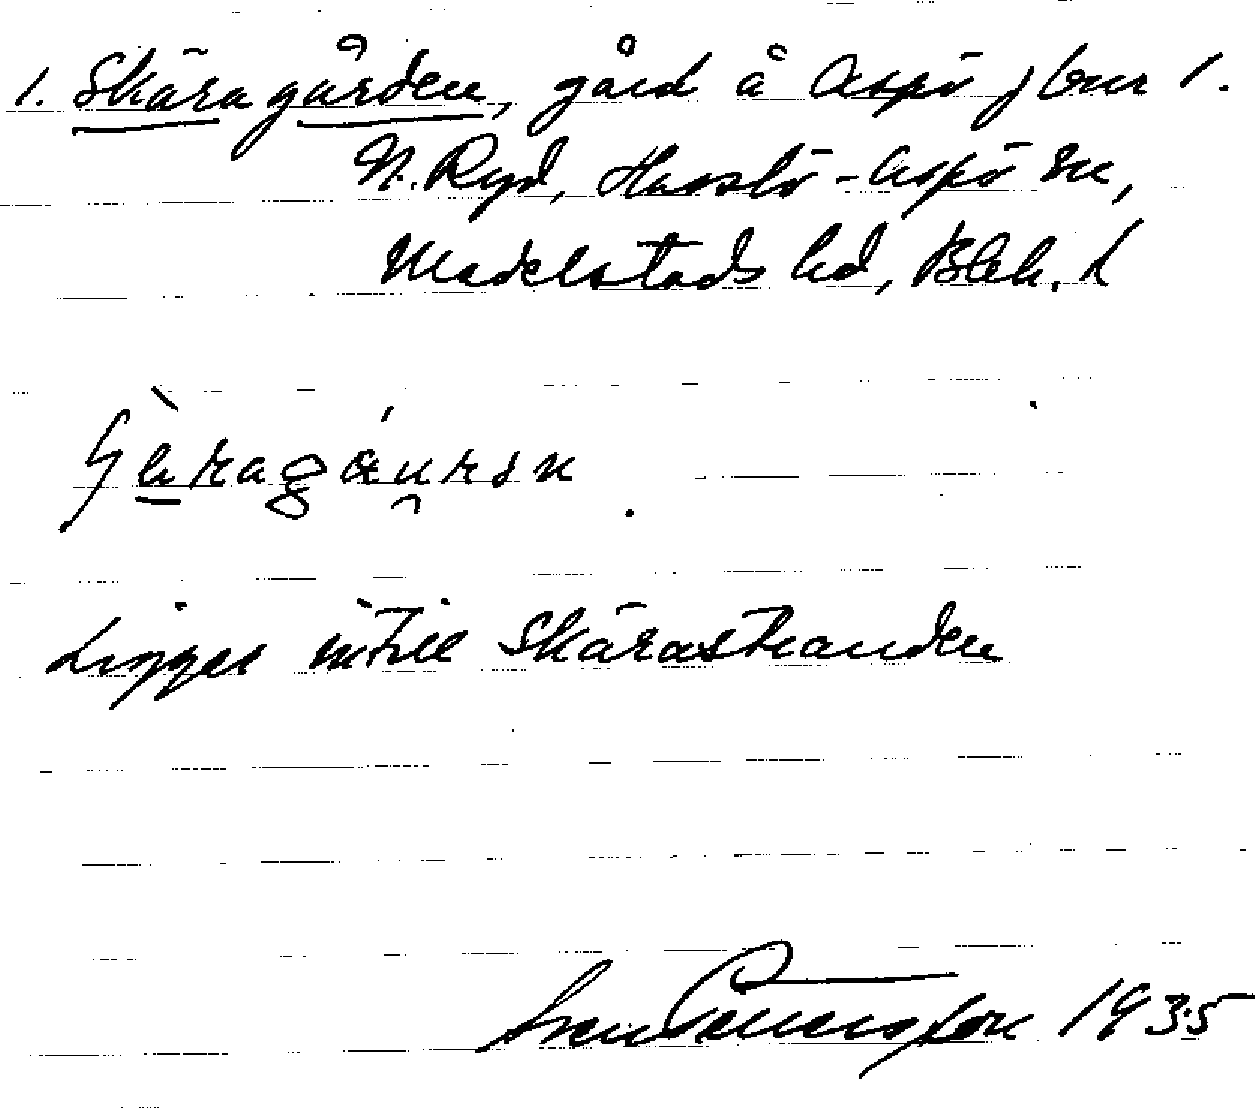 1. Skäragården, gård å Aspö jbnr 1.
N. Ryd, Hasslö-Aspö sn,
Medelstads hd, Blek. l
Ligger intill Skärastranden
Sven Benson 1935